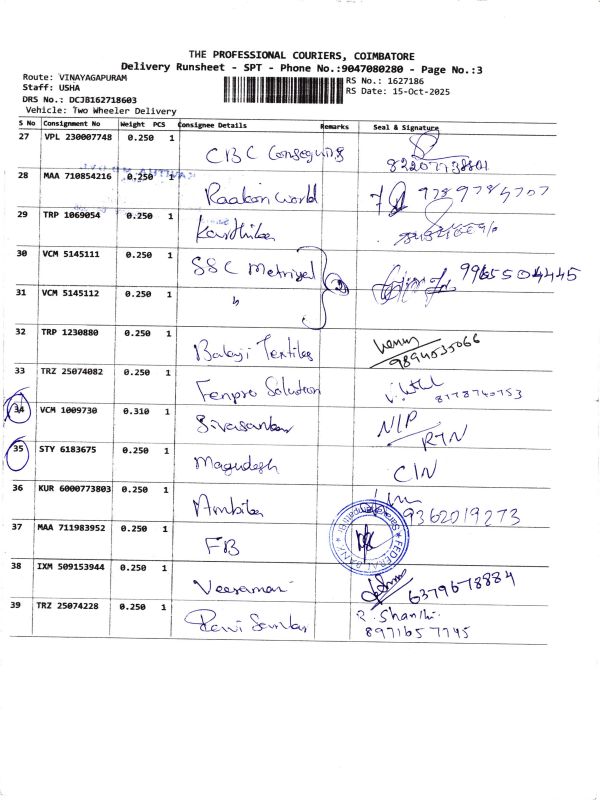 THE PROFESSIONAL COURIERS, COIMBATORE
Delivery Runsheet - SPT - Phone No.:9047080280 - Page No.:3
Route: VINAYAGAPURAM RS No.: 1627186
Staff: USHA RS Date: 15-Oct-2025
DRS No.: DCJB162718603
Vehicle: Two Wheeler Delivery
S No Consignment No Weight PCS Consignee Details Remarks Seal & Signature
27 VPL 230007748 0.250 1 CBC
28 MAA 710854216 0.250 1 Raakon World 9789784707
29 TRP 1069054 0.250 1 Karthika
30 VCM 5145111 0.250 1 SSC Metriyel 2 9965504445
31 VCM 5145112 0.250 1 "
32 TRP 1230880 0.250 1 Balaji Textiles 9894035066
33 TRZ 25074082 0.250 1 Fenpro Solution 8778740753
34 VCM 1009730 0.310 1 Sivasankar N/P
RTN
35 STY 6183675 0.250 1 Magudesh CIN
36 KUR 6000773803 0.250 1 Ambika 9362019273
37 MAA 711983952 0.250 1 FB FEDERAL BANK
38 IXM 509153944 0.250 1 Veeramani 6379678884
39 TRZ 25074228 0.250 1 Ravi Sankar R. Shanthi
8971657745